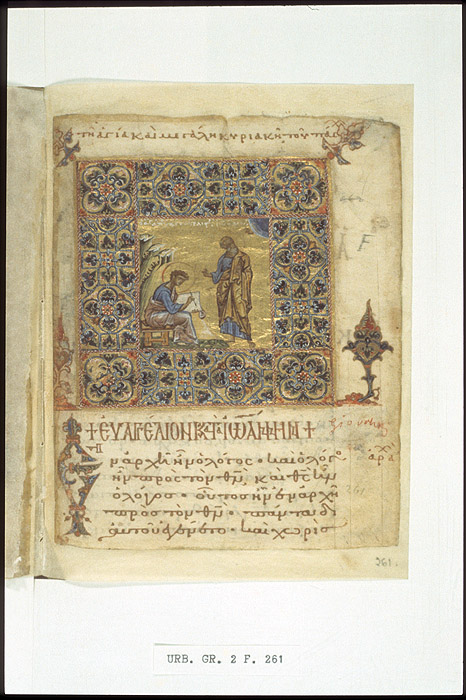 τῇ ἁγία καὶ μεγάλη κυριακῆ τοῦ πάσχ
F
+ ΕΥΑΓΓΕΛΙΟΝ ΚΑΤΑ ΙΩΑΝΝΗΝ +
ἐν ἀρχῆ ἦν ὁ λόγος · καὶ ὁ λόγος
ἦν πρὸς τὸν θν, καὶ θς ἦν
ὁ λόγος · οὗτος ἦν ἐν ἀρχῆ
πρὸς τὸν θν · πάντα δι
αὐτοῦ ἐγένετο · καὶ χωρὶς
261
261.
URB. GR. 2 F. 261